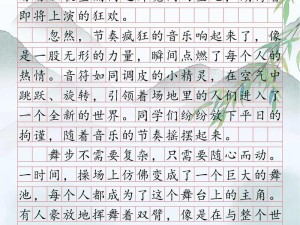 即将上演的狂欢。
忽然，节奏疯狂的音乐响起来了，像
是一股无形的力量，瞬间点燃了每个人的
热情。音符如同调皮的小精灵，在空气中
跳跃、旋转，引领着场地里的人们进入了
一个全新的世界。同学们纷纷放下平日的
拘谨，随着音乐的节奏摇摆起来。
舞步不需要复杂，只需要随心而动。
一时间，操场上仿佛变成了一个巨大的舞
池，每个人都成为了这个舞台上的主角。
有人豪放地挥舞着双臂，像是在与整个世